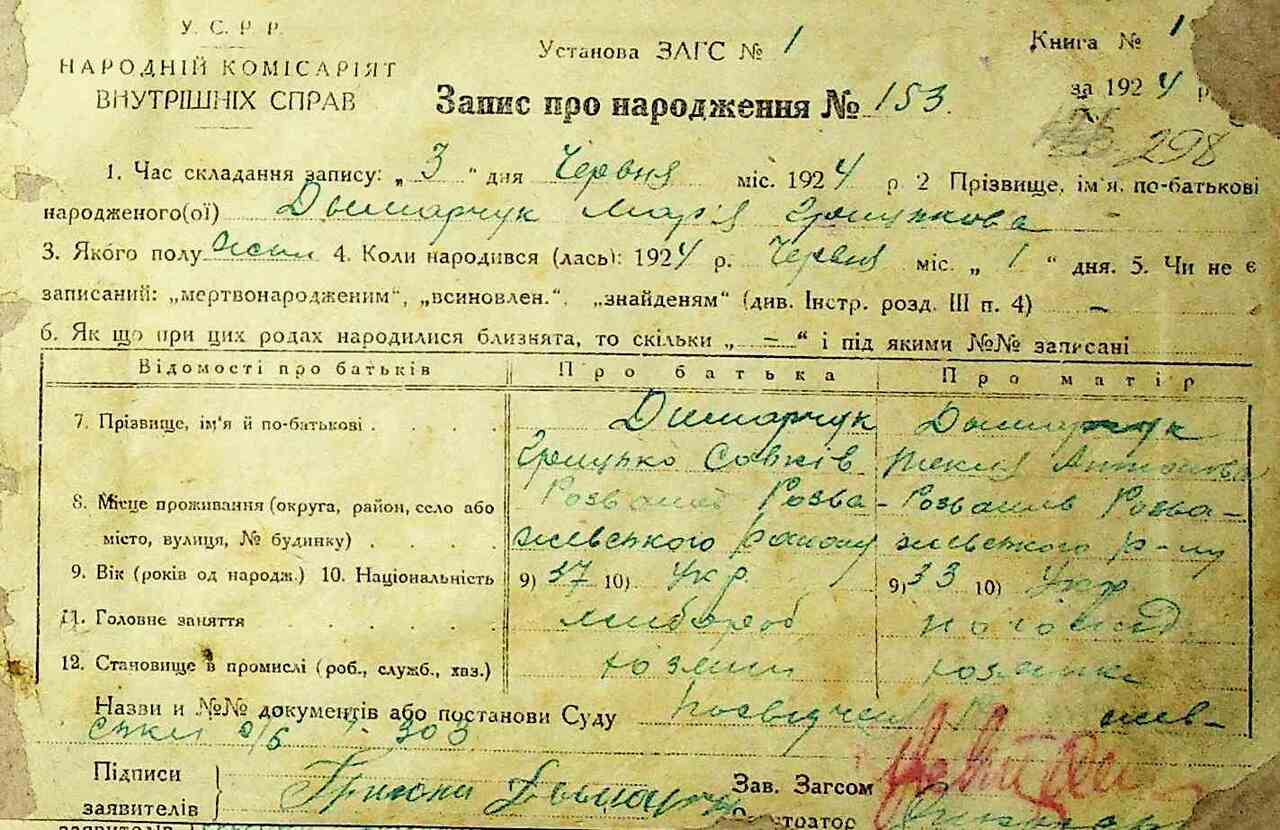 У. С. Р. Р.
НАРОДНІЙ КОМІСАРІЯТ
ВНУТРІШНІХ СПРАВ
Установа ЗАГС № 1
Книга № 1
за 1924 р
Запис про народження № 153
298
1. Час складання запису: „ 3 " дня Червня міс. 1924 р 2 Прізвище, ім'я, по-батькові
народженого(ої) Дымарчук Марія Грицькова
3. Якого полу жен 4. Коли народився (лась): 1924 р. Червня міс. „ 1 " дня. 5. Чи не є
записаний: „мертвонародженим", „всиновлен.", „знайденям" (див. Інстр. розд. III п. 4) –
6. Як що при цих родах народилися близнята, то скільки „ – " і під якими №№ записані
Відомості про батьків Про батька Про матір
7. Прізвище, ім'я й по-батькові . . . . Димарчук Дымарчук
Грицько Савків Текля Антонова
8. Місце проживання (округа, район, село або Розважів Розва- Розважів Розва-
місто, вулиця, № будинку) . . . . жевського району жевського р-ну
9. Вік (років од народж.) 10. Національність 9) 37 10) Укр. 9) 33 10) Укр
11. Головне заняття . . . . . хлибороб
12. Становище в промислі (роб., служб., хаз.) хозяин хозяйка
Назви и №№ документів або постанови Суду Посвідчен жев-
ський с/б № 303
Підписи
заявителів
Зав. Загсом
заявителів